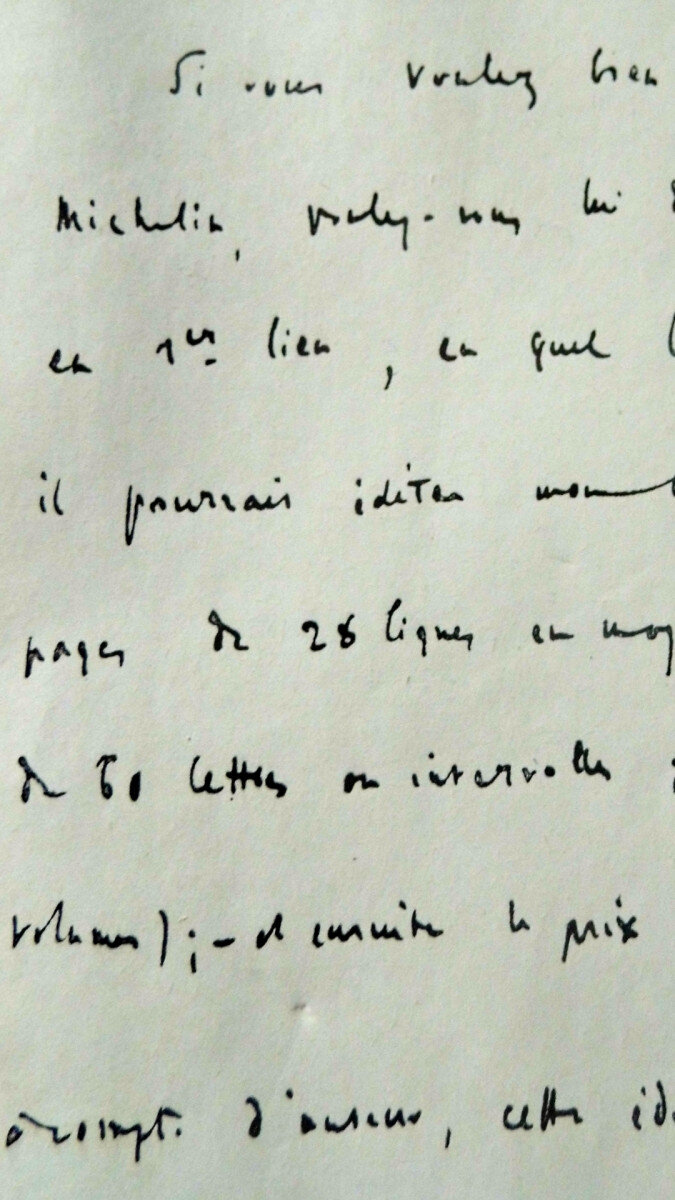 Si vous voulez bien
Michelin, voulez-vous lui
en 1er lieu, en quel
il pourrais éditer mon
pages de 28 lignes en moy
de 60 lettres ou intervalles
volumes); - et ensuite le prix
à compt. d'auteur, cette éd